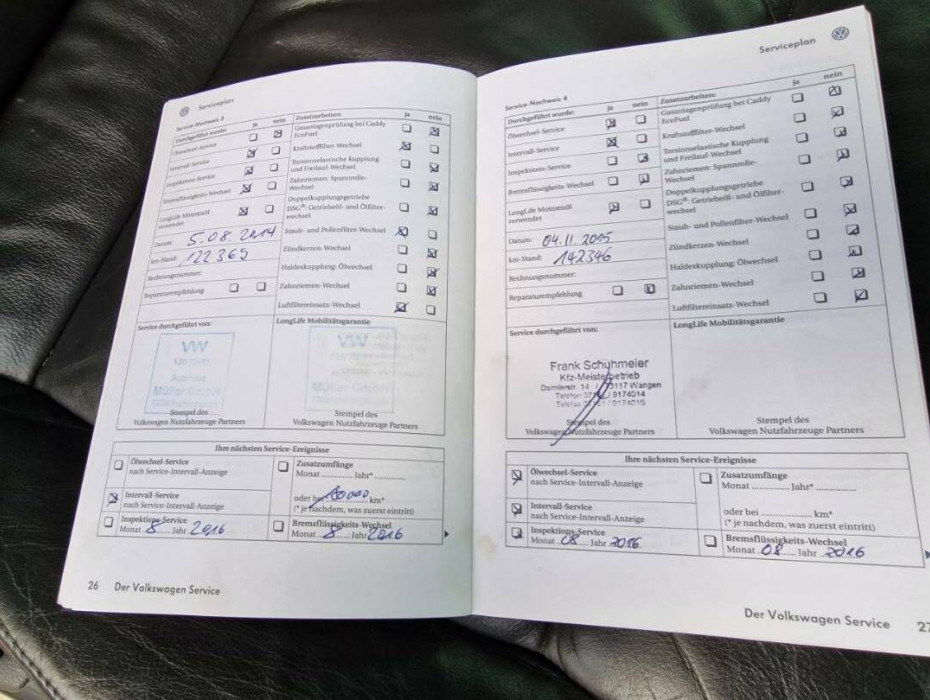 Serviceplan
Service-Nachweis 3
Durchgeführt wurde: ja nein
Ölwechsel-Service
Intervall-Service
Inspektions-Service
Bremsflüssigkeits-Wechsel
LongLife Motorenöl
verwendet
Datum: 5.08.2014
km-Stand: 122 369
Rechnungsnummer:
Reparaturempfehlung
Zusatzarbeiten: ja nein
Gasanlagenprüfung bei Caddy
EcoFuel
Kraftstofffilter-Wechsel
Torsionselastische Kupplung
und Freilauf-Wechsel
Zahnriemen: Spannrolle-
Wechsel
Doppelkupplungsgetriebe
DSG®: Getriebeöl- und Ölfilter-
wechsel
Staub- und Pollenfilter-Wechsel
Zündkerzen-Wechsel
Haldexkupplung: Ölwechsel
Zahnriemen-Wechsel
Luftfiltereinsatz-Wechsel
Service durchgeführt von:
VW
Autohaus
Müller GmbH
Stempel des
Volkswagen Nutzfahrzeuge Partners
LongLife Mobilitätsgarantie
VW
Müller GmbH
Stempel des
Volkswagen Nutzfahrzeuge Partners
Ihre nächsten Service-Ereignisse
Ölwechsel-Service
nach Service-Intervall-Anzeige
Intervall-Service
nach Service-Intervall-Anzeige
Inspektions-Service
Monat 8 Jahr 2016
Zusatzumfänge
Monat ............ Jahr* ............
oder bei 180000 km*
(* je nachdem, was zuerst eintritt)
Bremsflüssigkeits-Wechsel
Monat 8 Jahr 2016
26 Der Volkswagen Service
Serviceplan
Service-Nachweis 4
Durchgeführt wurde: ja nein
Ölwechsel-Service
Intervall-Service
Inspektions-Service
Bremsflüssigkeits-Wechsel
LongLife Motorenöl
verwendet
Datum: 04.11.2015
km-Stand: 142346
Rechnungsnummer:
Reparaturempfehlung
Zusatzarbeiten: ja nein
Gasanlagenprüfung bei Caddy
EcoFuel
Kraftstofffilter-Wechsel
Torsionselastische Kupplung
und Freilauf-Wechsel
Zahnriemen: Spannrolle-
Wechsel
Doppelkupplungsgetriebe
DSG®: Getriebeöl- und Ölfilter-
wechsel
Staub- und Pollenfilter-Wechsel
Zündkerzen-Wechsel
Haldexkupplung: Ölwechsel
Zahnriemen-Wechsel
Luftfiltereinsatz-Wechsel
Service durchgeführt von:
Frank Schuhmeier
Kfz-Meisterbetrieb
Daimlerstr. 14 / 73117 Wangen
Telefon 07161 / 9174014
Telefax 07161 / 9174015
Stempel des
Volkswagen Nutzfahrzeuge Partners
LongLife Mobilitätsgarantie
Stempel des
Volkswagen Nutzfahrzeuge Partners
Ihre nächsten Service-Ereignisse
Ölwechsel-Service
nach Service-Intervall-Anzeige
Intervall-Service
nach Service-Intervall-Anzeige
Inspektions-Service
Monat 08 Jahr 2016
Zusatzumfänge
Monat ............ Jahr* ............
oder bei ................ km*
(* je nachdem, was zuerst eintritt)
Bremsflüssigkeits-Wechsel
Monat 08 Jahr 2016
Der Volkswagen Service 27